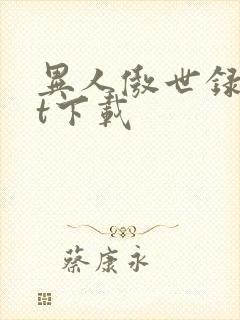 異人傲世録
t下載
蔡康永